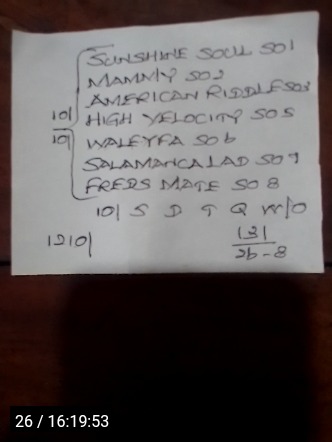 SUNSHINE SOUL SO1
MAMMY SO2
AMERICAN RIDDLE SO3
10/ HIGH VELOCITY SO5
10/ WALEYFA SO6
SALAMANCA LAD SO7
FREDS MATE SO8
10/ S D T Q W/O
1210/
131
26-8
26 / 16:19:53